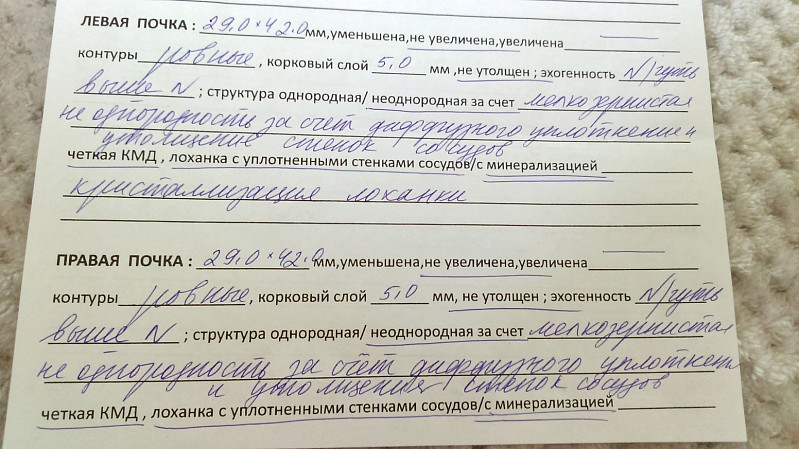 ЛЕВАЯ ПОЧКА : 29.0 × 42.0 мм,уменьшена,не увеличена,увеличена
контуры ровные , корковый слой 5,0 мм ,не утолщен ; эхогенность N/чуть
выше N ; структура однородная/ неоднородная за счет мелкозернистая
не однородность за счет диффузного уплотнение и
утолщение стенок сосудов
четкая КМД , лоханка с уплотненными стенками сосудов/с минерализацией
кристаллизация лоханки
ПРАВАЯ ПОЧКА : 29.0 × 42.0 мм,уменьшена,не увеличена,увеличена
контуры ровные , корковый слой 5,0 мм, не утолщен ; эхогенность N/чуть
выше N ; структура однородная/ неоднородная за счет мелкозернистая
не однородность за счёт диффузного уплотнен
и утолщение стенок сосудов
четкая КМД , лоханка с уплотненными стенками сосудов/с минерализацией